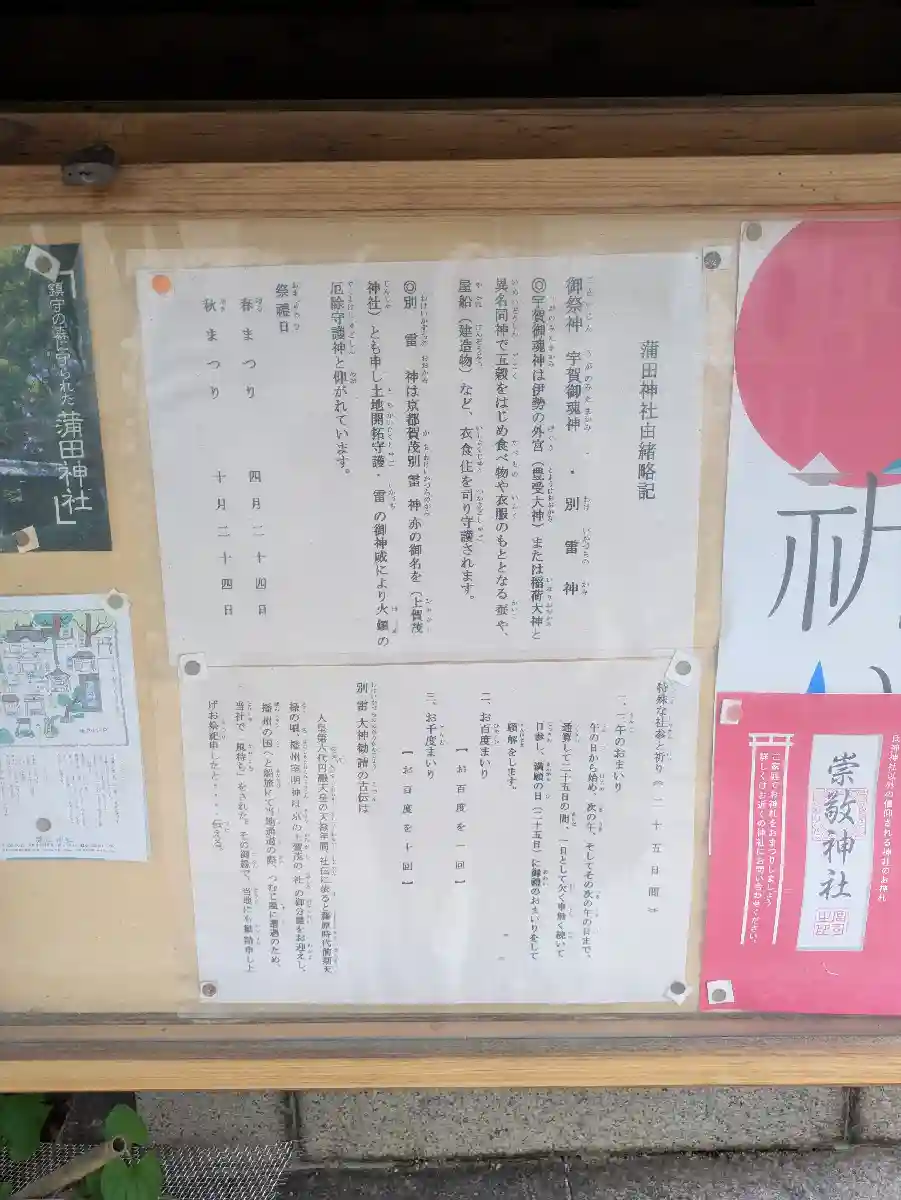 蒲田神社由緒略記
御祭神　宇賀御魂神　・　別雷神
◎宇賀御魂神は伊勢の外宮（豊受大神）または稲荷大神と
異名同神で五穀をはじめ食べ物や衣服のもととなる蚕や、
屋船（建造物）など、衣食住を司り守護されます。
◎別雷神は京都賀茂別雷神亦の御名を（上賀茂
神社）とも申し土地開拓守護・雷の御神威により火難の
厄除守護神と仰がれています。
祭禮日
春まつり　四月二十四日
秋まつり　十月二十四日
特殊な社参と祈り（二十五日間）
一、二午のおまいり
午の日から始め、次の午、そしてその次の午の日まで、
通算して二十五日の間、一日として欠く事無く続いて
日参し、満願の日（二十五日）に御礼のおまいりをして
願解をします。
二、お百度まいり
【お百度を一回】
三、お千度まいり
【お百度を十回】
別雷大神勧請の古伝は
人皇第六代円融天皇の天禄年間
播州の国へと船旅にて当地通過の際、つむじ風に遭遇のため、
当社で「風待ち」をされた。その御縁で、当地にも勧請申し上
げお祭祀申したと・・・伝える。
「鎮守の森に守られた
蒲田神社」
祈
氏神神社以外の信仰される神社のお神札
崇敬神社
ご家庭でお神札をおまつりしましょう
詳しくはお近くの神社にお問い合わせください。